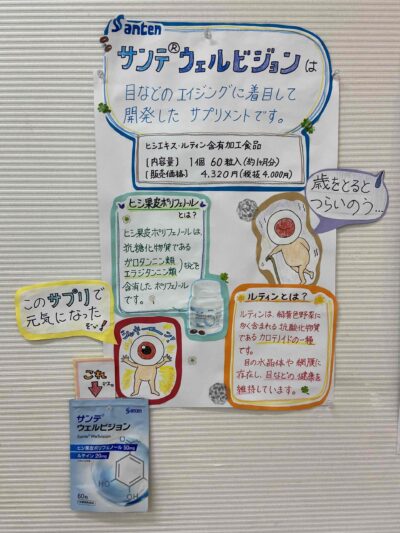 Santen
サンテ®ウェルビジョンは
目などのエイジングに着目して
開発した サプリメントです。
ヒシエキス・ルテイン含有加工食品
[内容量] 1個 60粒入(約1ヶ月分)
[販売価格] 4,320円(税抜 4,000円)
歳をとると
つらいのう…
ヒシ果皮ポリフェノール
とは?
ヒシ果皮ポリフェノールは、
抗糖化物質である
ガロタンニン類
エラジタンニン類
などを
含有した ポリフェノール
です。
このサプリで
元気になった
ぞい!
ルテインとは?
ルテインは、緑黄色野菜に
多く含まれる 抗酸化物質
である カロテノイドの一種
です。
目の水晶体や網膜に
存在し、目などの健康を
維持しています。
これ
Santen
サンテ
ウェルビジョン
Sante Wellvision
ヒシ果皮ポリフェノール 50mg
ルテイン 20mg
HO
OH
60粒